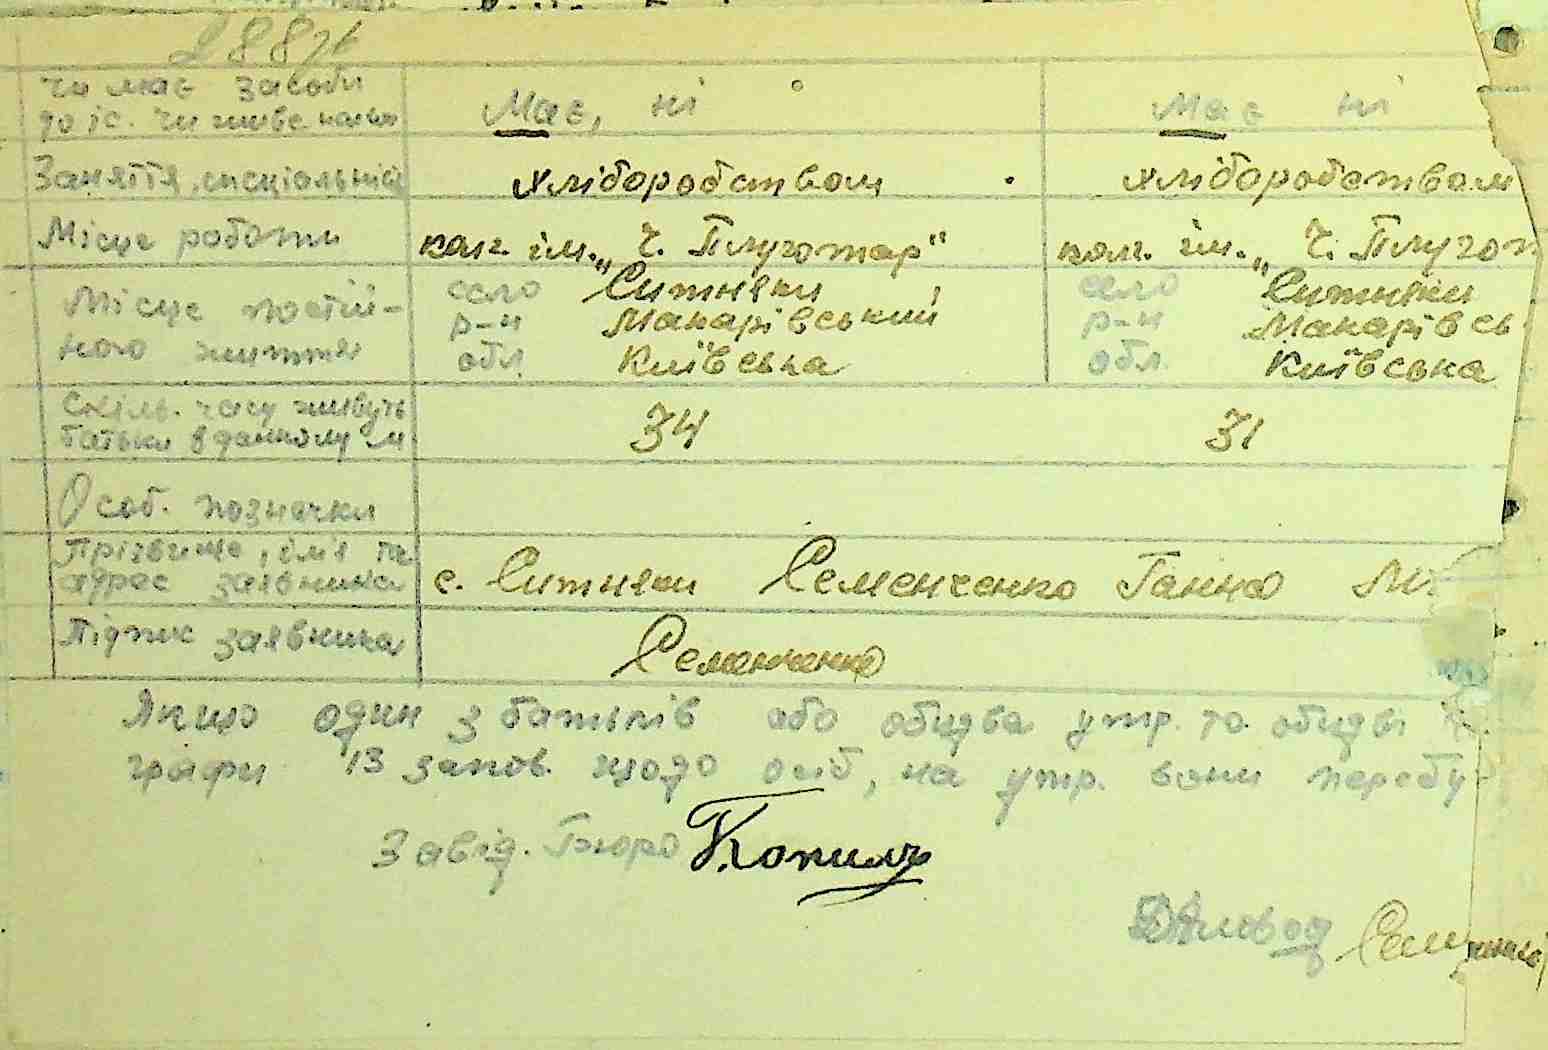 288
Чи має засоби
до іс. чи живе на Має, ні Має ні
Заняття, спеціальність хліборобством хліборобством
Місце роботи колг. ім. „Ч. Плугатар" колг. ім. „Ч. Плугат
Місце постій- село Ситняки село Ситняки
ного життя р-н Макарівський р-н Макарівсь
обл. Київська обл. Київська
Скіль. часу живуть
батьки в данному м 34 31
Особ. позначки
Прізвище, ім'я та
адрес заявника с. Ситняки Семенченко Ганна М.
Підпис заявника Семенченко
Якщо один з батьків або обидва утр. то обидві
графи 13 запов. щодо осіб, на утр. вони перебу
Завід. Бюро Копил
Діловод